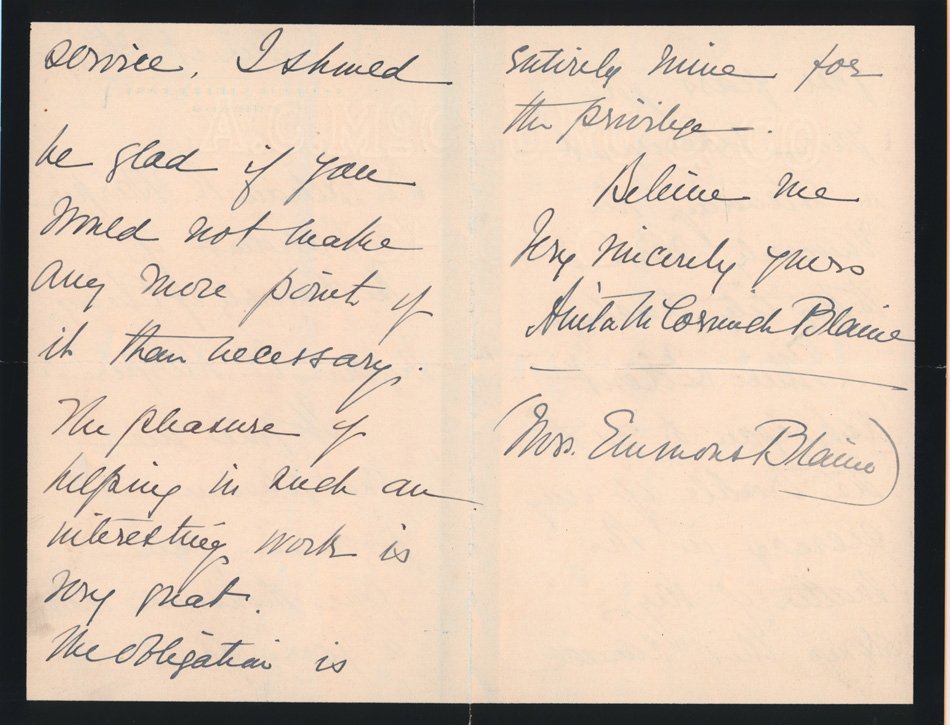 service. I should
be glad if you
would not make
any more point of
it than necessary.
The pleasure of
helping in such an
interesting work is
very great.
The obligation is
entirely mine for
the privilege—.
Believe me
Very sincerely yours
Anita McCormick Blaine
(Mrs. Emmons Blaine)